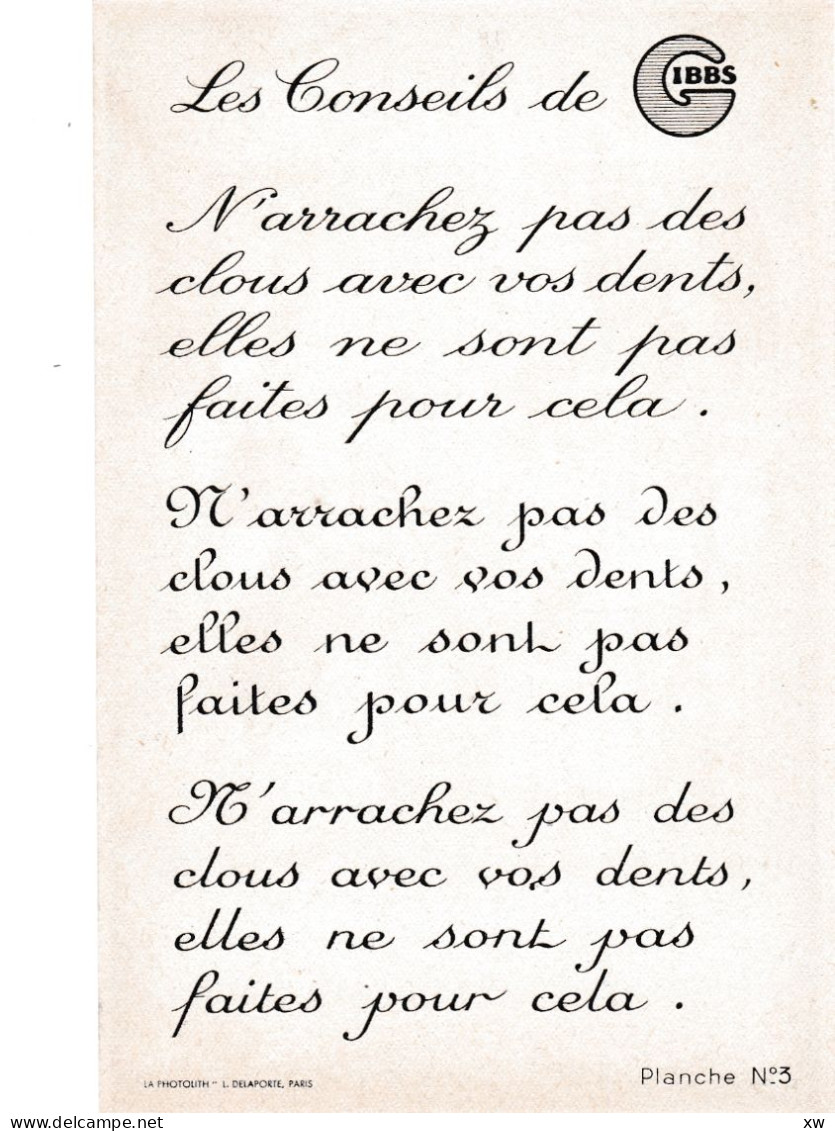 Les Conseils de GIBBS
N'arrachez pas des
clous avec vos dents,
elles ne sont pas
faites pour cela.
N'arrachez pas des
clous avec vos dents,
elles ne sont pas
faites pour cela.
N'arrachez pas des
clous avec vos dents,
elles ne sont pas
faites pour cela.
LA PHOTOLITH - L. DELAPORTE, PARIS
Planche Nº3
xw